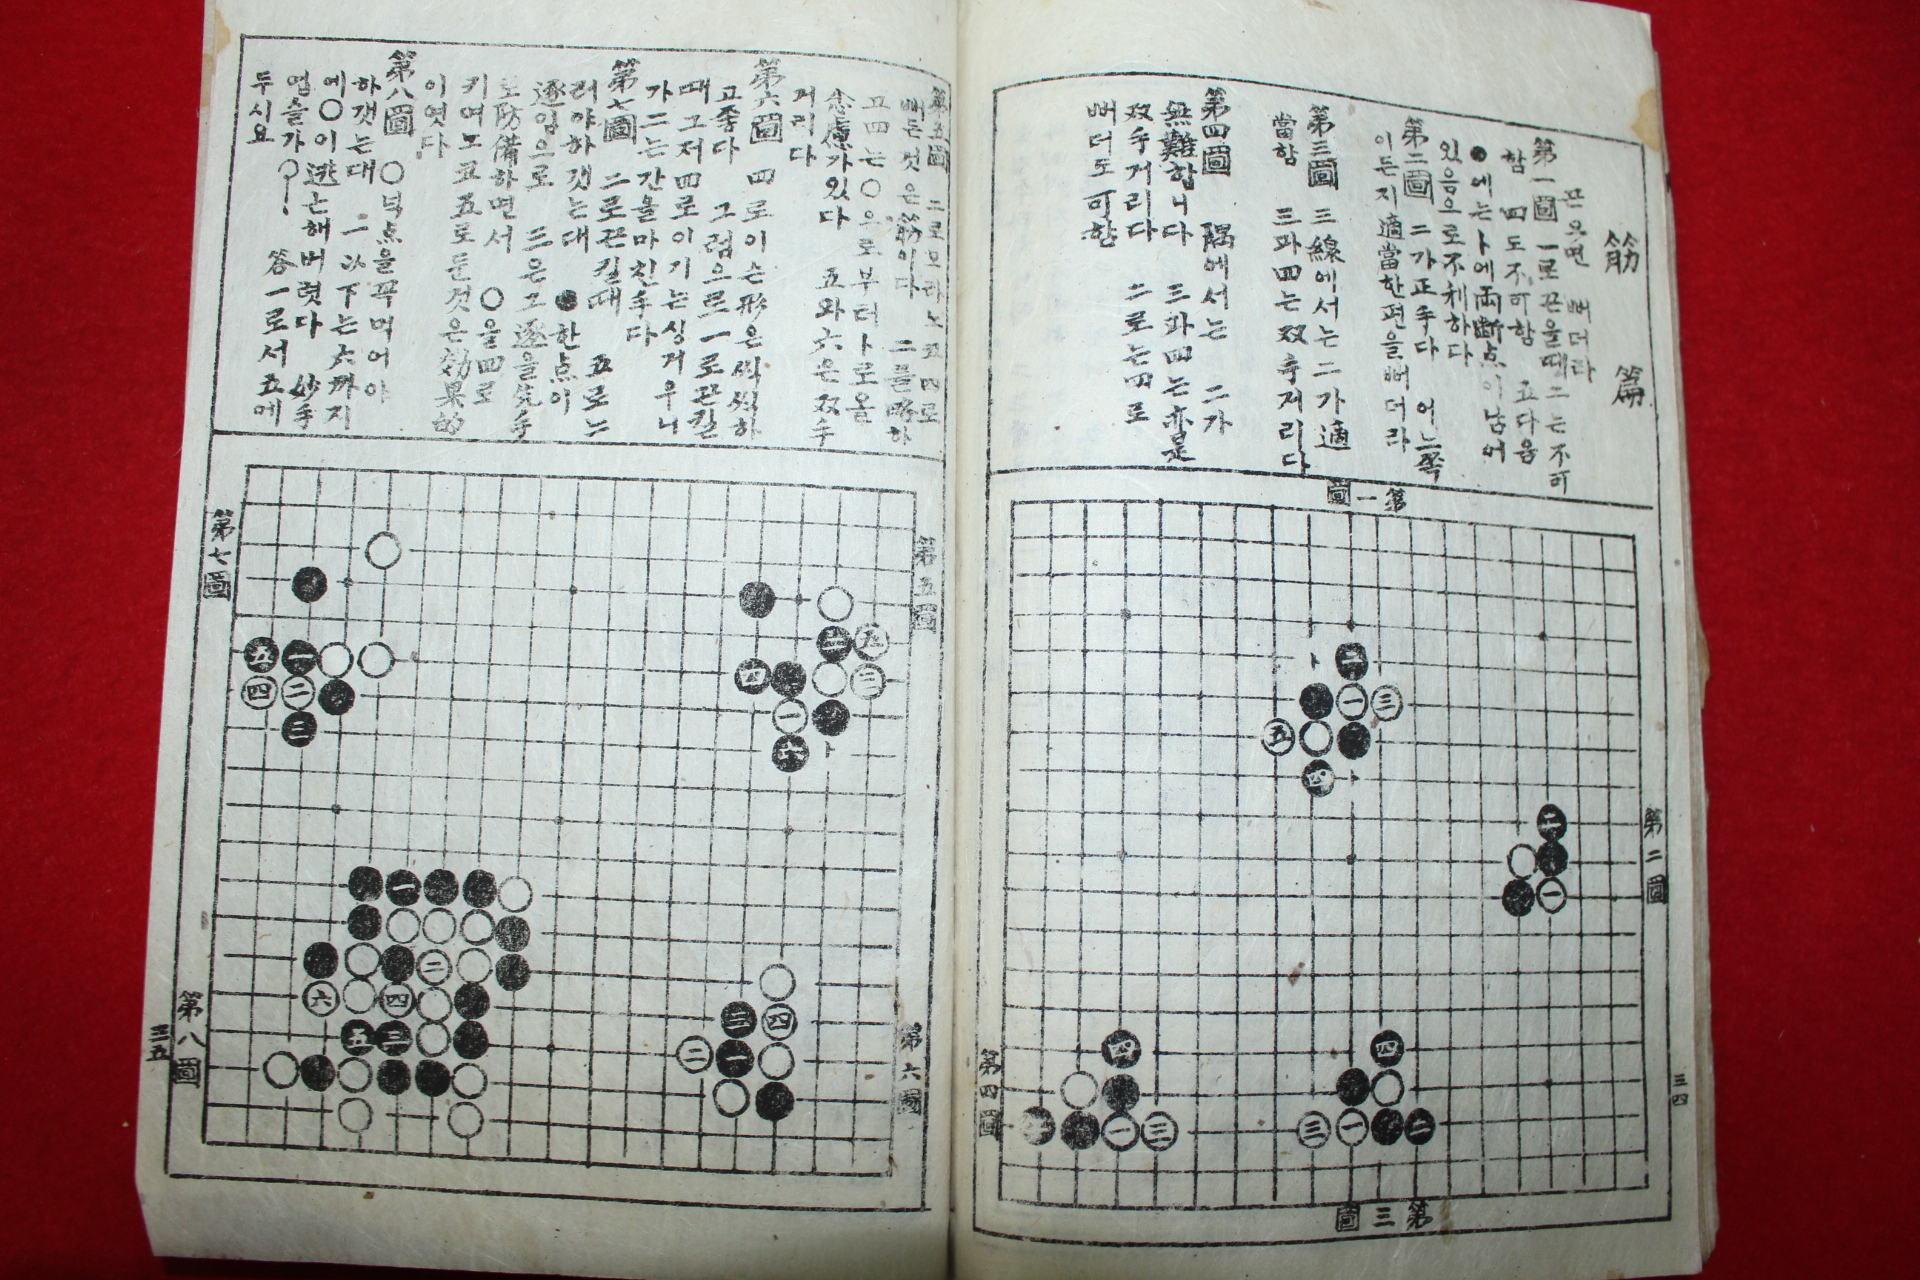 筋 篇
끈으면 뻐더라
第一圖 一로끈을때 二는不可
함 四도不可함 五다음
●에는ㅏ에両断点이남어
있음으로不利하다
第二圖 二가正手다 어느쪽
이든지適當한편을뻐더라
第三圖 三線에서는二가適
當함 三과四는双手거리다
第四圖 隅에서는 二가
無難합니다 三과四는亦是
双手거리다 二로는四로
뻐더도可함
第一圖
第二圖
第三圖
第四圖
三四
第五圖
뻐든것은筋이다
고四는○으로부터ㅏ로올
念慮가있다 五와六은双手
거리다
第六圖 四로이슨形은씩씩하
고좋다 그럼으로一로끈킬
때 그저四로이기는싱거우니
가二는간을마친手다
第七圖 二로끈킬때 五로느
러야하겟는대 ●한点이
逐임으로 三은그逐을先手
로防備하면서 ○을四로
키여노코五로둔것은効果的
이엿다
第八圖 ○넉点을꼭먹어야
하갯는대 一以下는六까지
에○이逃亡해버렷다 妙手
업슬가○! 答一로서五에
두시요
第五圖
第六圖
第七圖
第八圖
三五